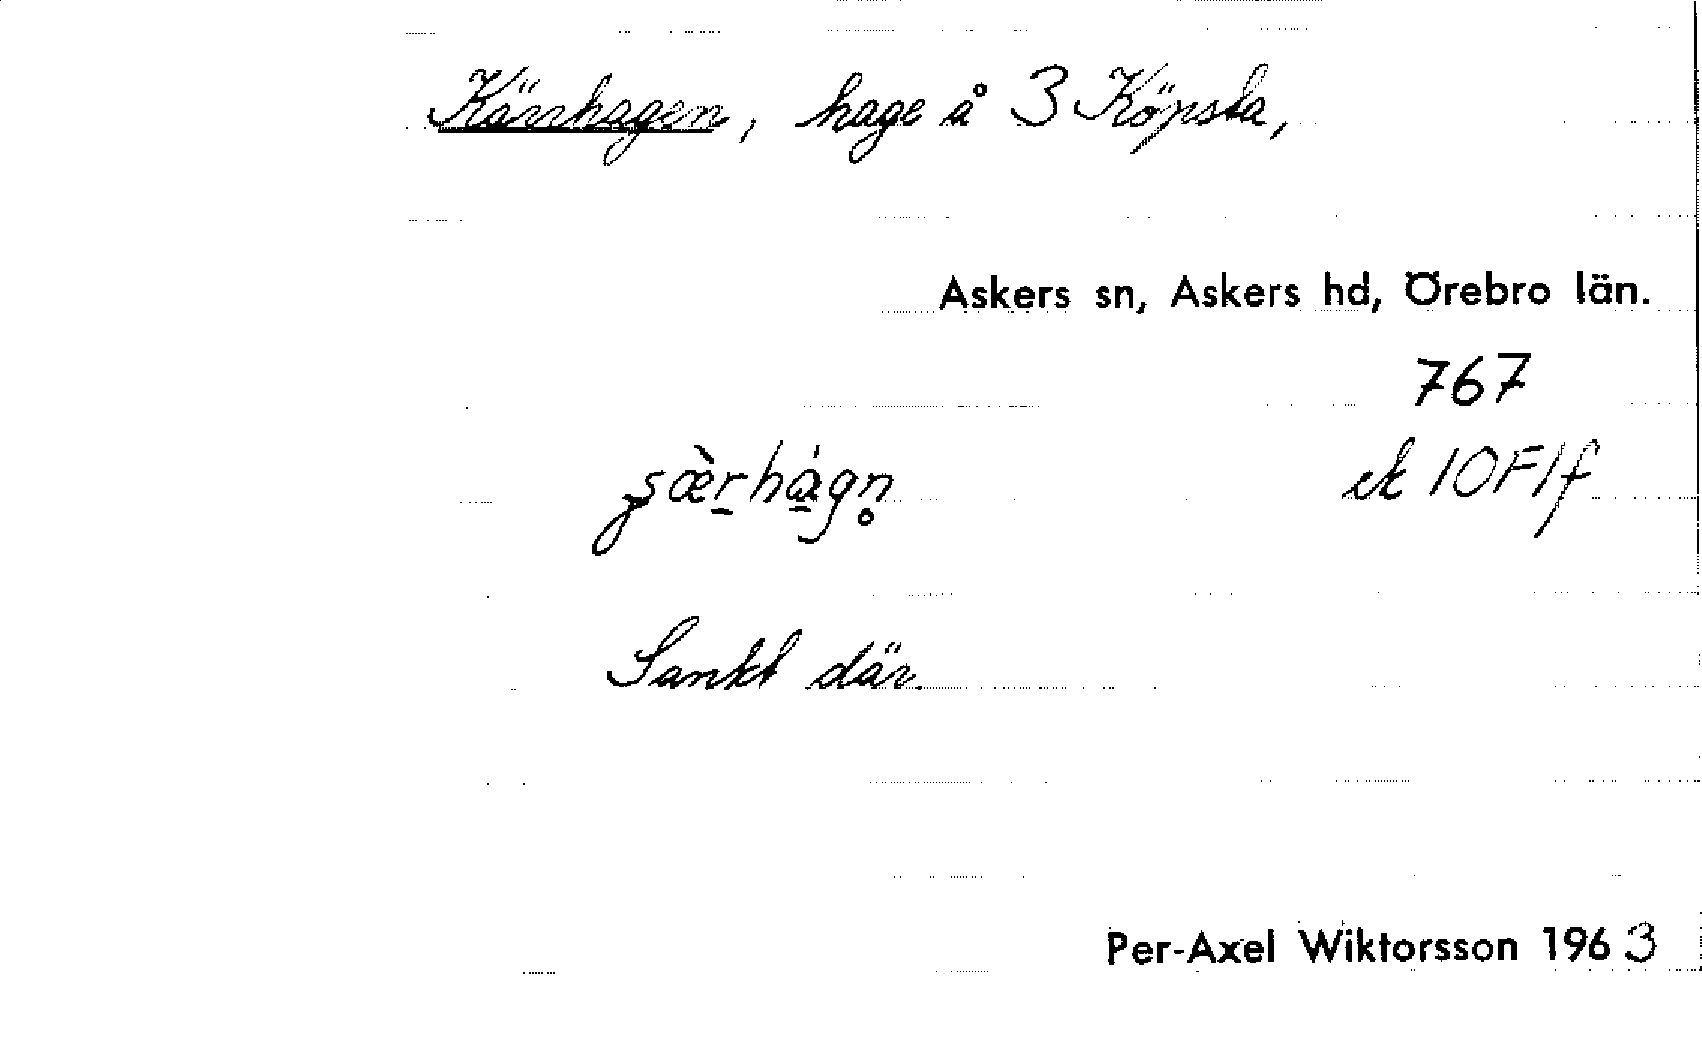 Kärrhagen, hage å 3 Köpsta,
Askers sn, Askers hd, Örebro län.
767
ek 10F1f
Sankt där.
Per-Axel Wiktorsson 1963